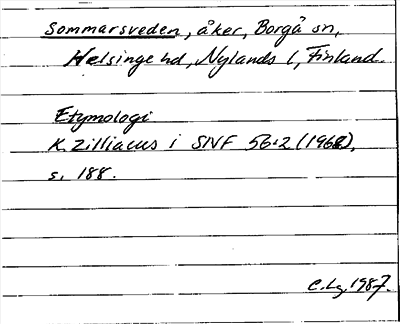 Sommarsveden, åker, Borgå sn,
Helsinge hd, Nylands l, Finland.
Etymologi
K. Zilliacus i SNF 56:2 (1968),
s. 188.
C. Lg. 1987.